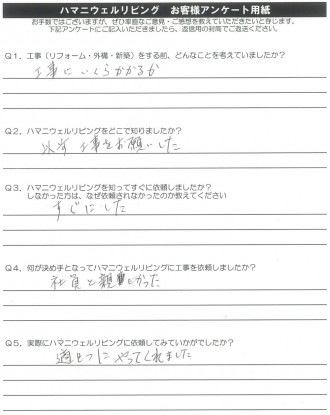 ハマニウェルリビング お客様アンケート用紙
お手数ではございますが、ぜひ率直なご意見・ご感想を教えていただきたいと存じます。
下記アンケートにご記入いただきましたら、返信用の封筒でご返送ください。
Q1．工事（リフォーム・外構・新築）をする前、どんなことを考えていましたか？
工事にいくらかかるか
Q2．ハマニウェルリビングをどこで知りましたか？
以前 工事をお願いした
Q3．ハマニウェルリビングを知ってすぐに依頼しましたか？
しなかった方は、なぜ依頼されなかったのか教えてください
すぐにした
Q4．何が決め手となってハマニウェルリビングに工事を依頼しましたか？
社員と親しかった
Q5．実際にハマニウェルリビングに依頼してみていかがでしたか？
やってくれました